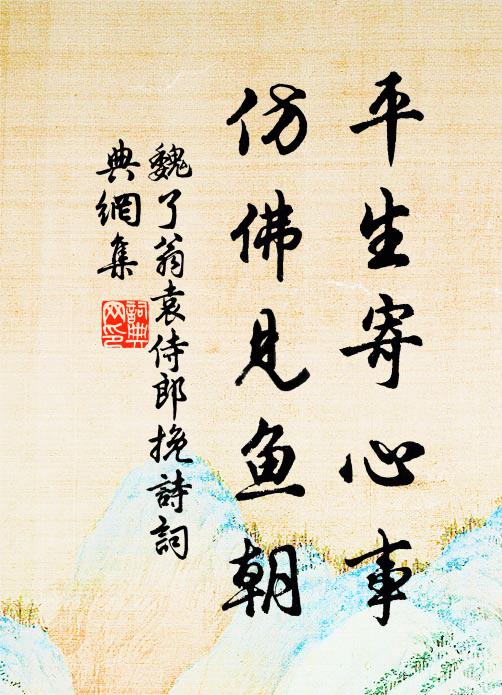 平生寄心事
仿佛见鱼朝
魏了翁袁侍郎挽诗詞
典網集
詞典
网印